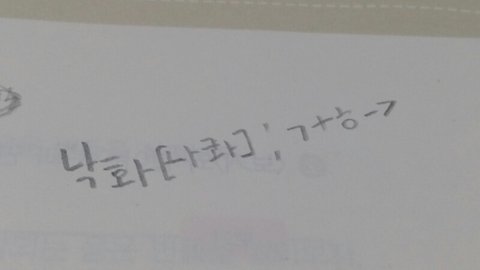 낙화[나콰]; ㄱ+ㅎ->ㅋ